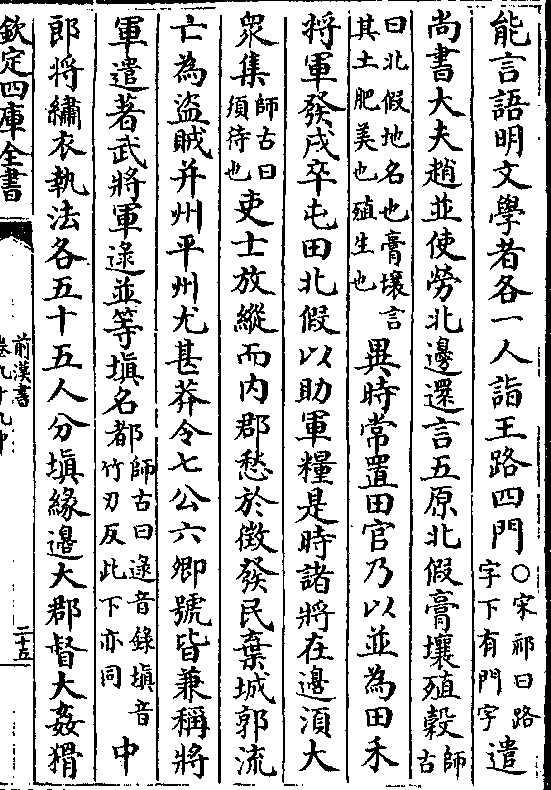 能言語明文學者各一人詣王路四門〇宋祁曰路字下有門字遣
尚書大夫趙並使勞北邊還言五原北假膏壤殖穀師古
曰北假地名也膏壤言其土肥美也殖生也異時常置田官乃以並為田禾
將軍發戍卒屯田北假以助軍糧是時諸將在邊須大
衆集師古曰須待也吏士放縱而内郡愁於徴發民棄城郭流
亡為盜賊并州平州尤甚莽令七公六卿號皆兼稱將
軍遣著武將軍逯並等塡名都師古曰逯音錄塡音竹刃反此下亦同中
郎將繡衣執法各五十五人分塡緣邊大郡督大姦猾
欽定四庫全書
前漢書
卷九十九中
二十五